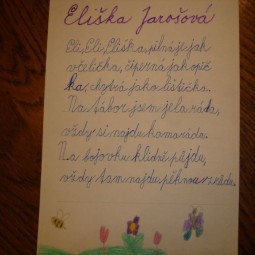 Eliška Jarošová
Eli, Eli, Eliška, pilná jí jak
včelička, čiperná jak opič
ka, chytrá jako lištička.
Na tábor jsem jela ráda,
vždy si najdu kamaráda.
Na bojovku klidně půjdu,
vždy tam najdu pěknou